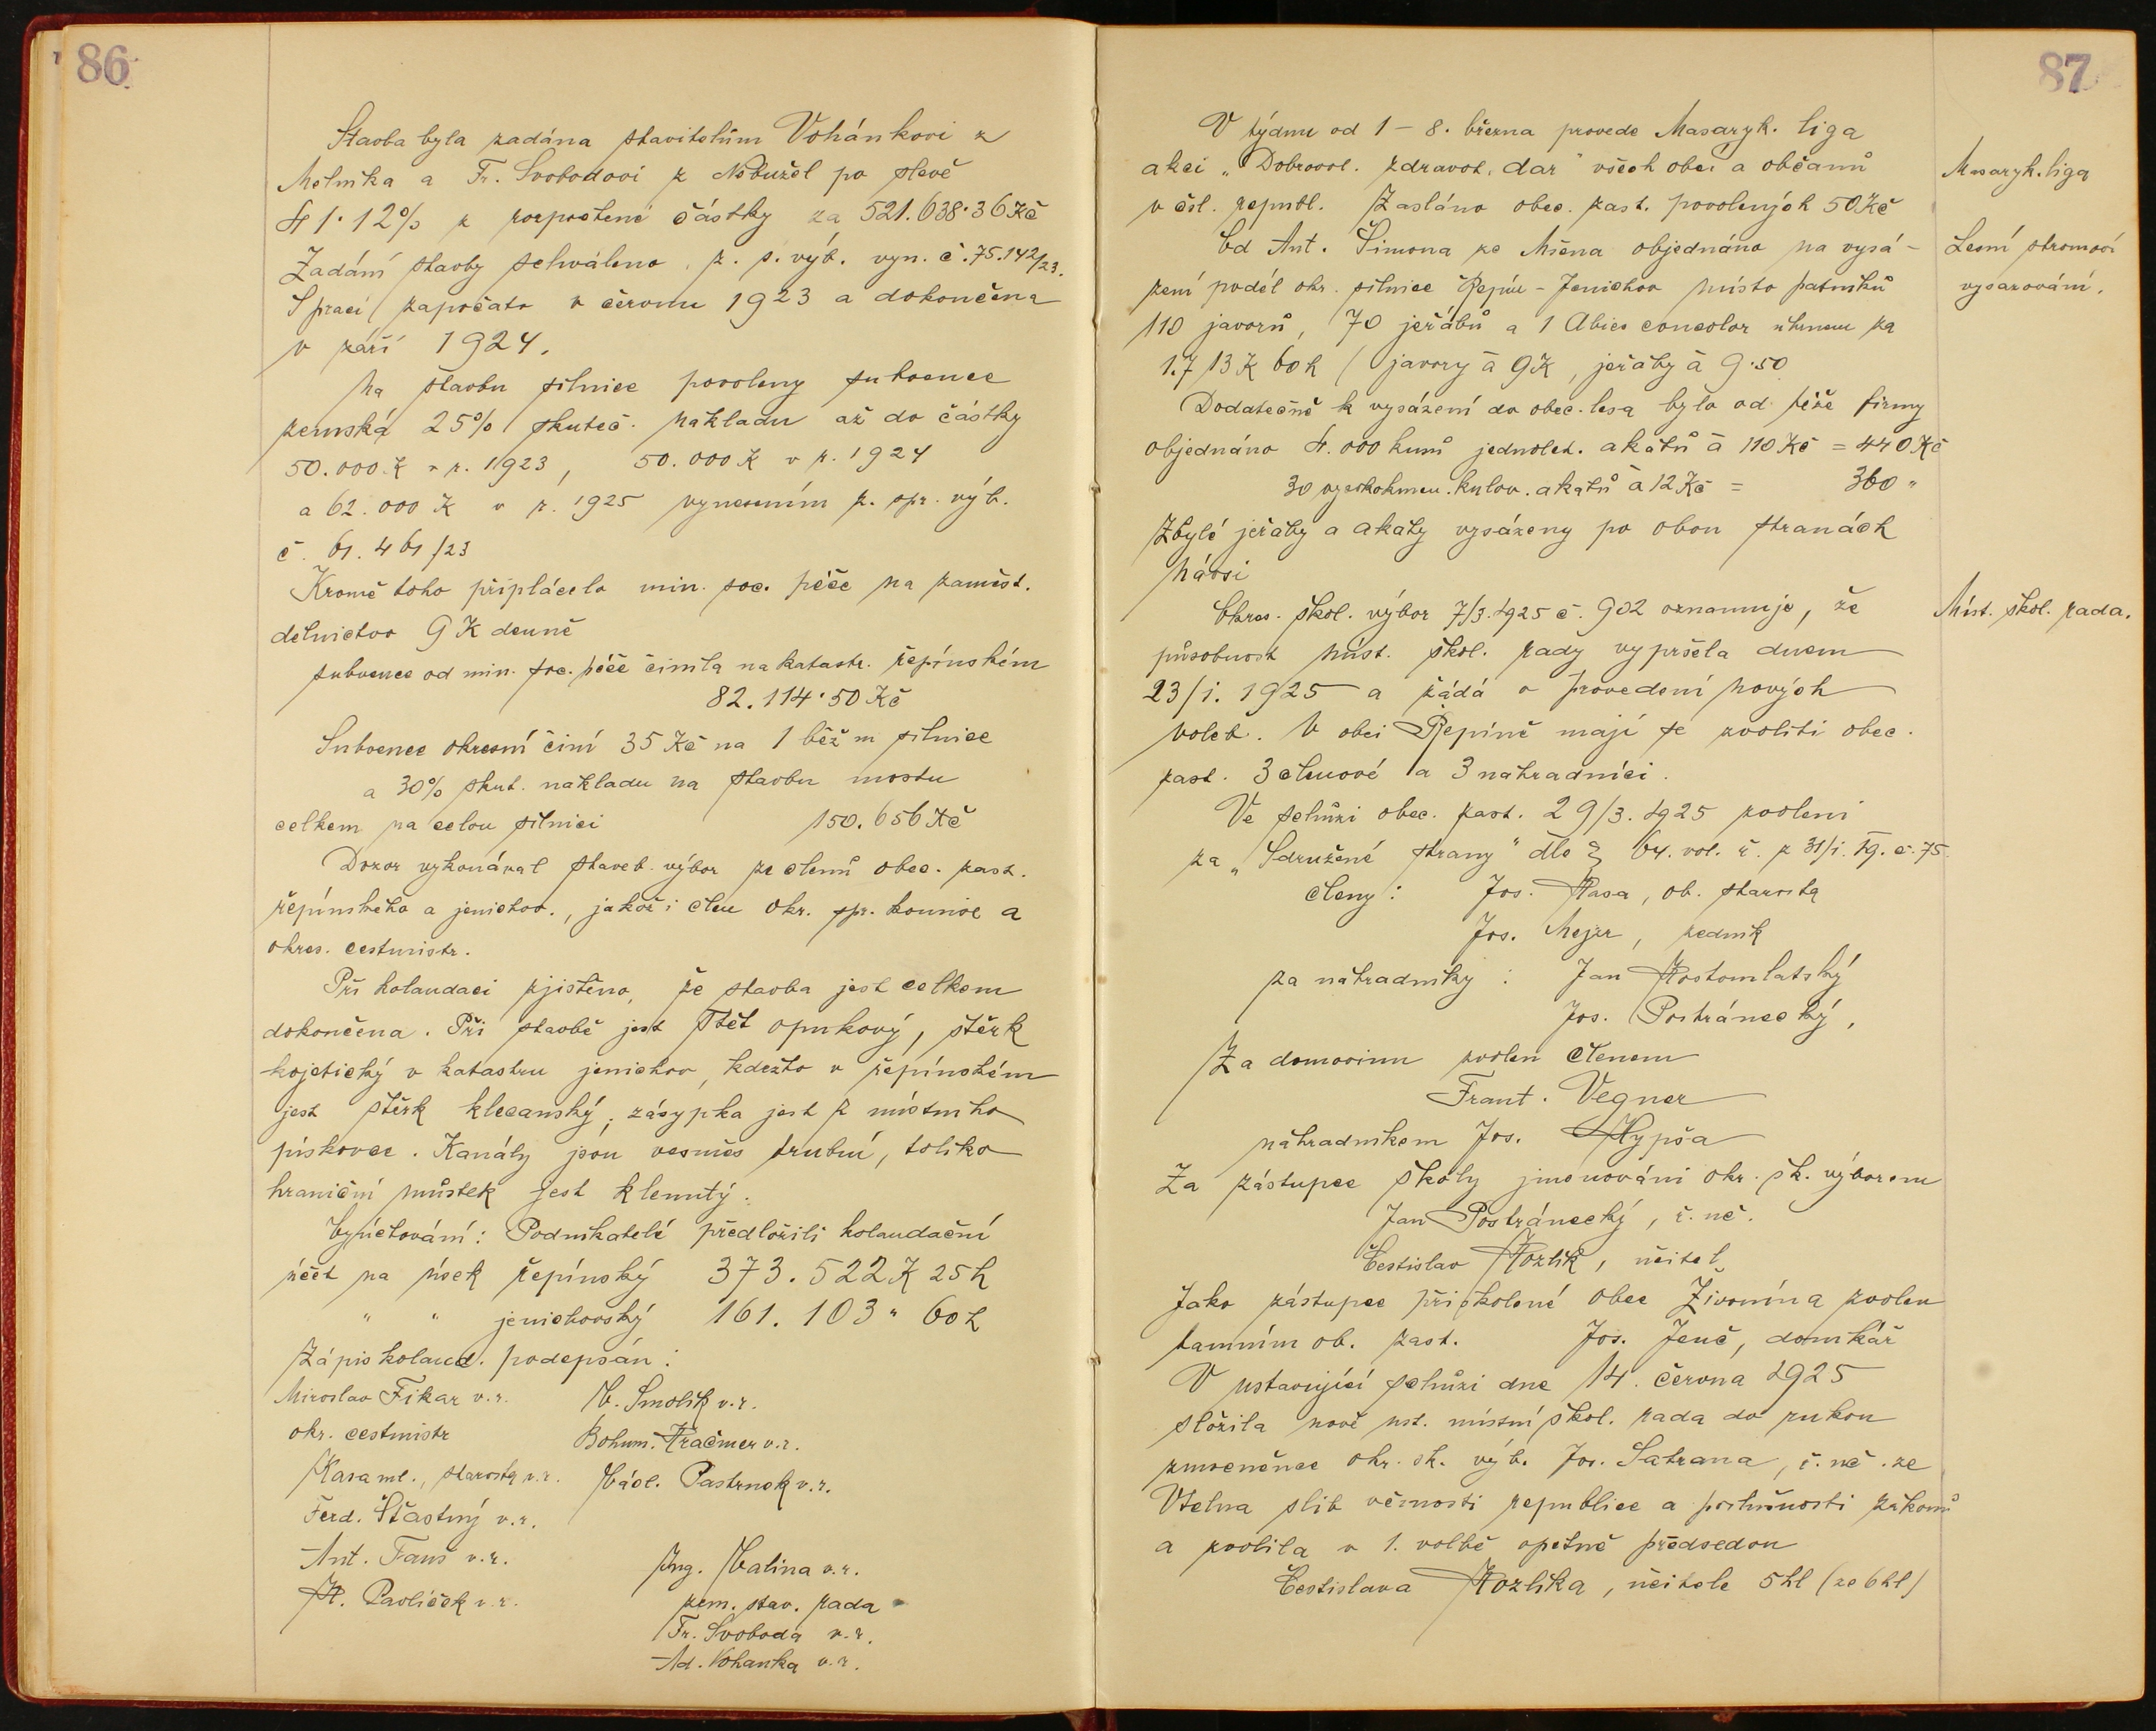 86
Stavba byla zadána stavitelům Vohánkovi z
Mělníka a Fr. Svobodovi z Nebužel po slevě
41·12% z rozpočtené částky za 521.638·36 Kč
Zadání stavby schváleno z. s. výb. vyn. č. 75.142/23.
S prací započato v červnu 1923 a dokončena
v září 1924.
Na stavbu silnice povoleny subvence
zemská 25% skuteč. nákladu až do částky
50.000 K v r. 1923, 50.000 K v r. 1924
a 62.000 K v r. 1925 vynesením z. spr. výb.
č. 61.461/23
Kromě toho připlácelo min. soc. péče na zaměst.
dělnictvo 9 K denně
subvence od min. soc. péče činila na katastr. řepínském
82.114·50 Kč
Subvence okresní činí 35 Kč na 1 běž m silnice
a 30% skut. nákladu na stavbu mostu
celkem na celou silnici 150.656 Kč
Dozor vykonával staveb. výbor ze členů obec. zast.
řepínského a jenichov., jakož i člen okr. spr. komise a
okres. cestmistr.
Při kolaudaci zjištěno, že stavba jest celkem
dokončena. Při stavbě jest štět opukový, štěrk
kojetický v katastru jenichov, kdežto v řepínském
jest štěrk klecanský, zásypka jest z místního
pískovce. Kanály jsou vesměs trubní, toliko
hraniční můstek jest klenutý.
Vyúčtování: Podnikatelé předložili kolaudační
účet na úsek řepínský 373.522 K 25 h
" " jenichovský 161.103 " 60 h
Zápis kolaud. podepsán:
Miroslav Fikar v.r. V. Smolík v.r.
okr. cestmistr Bohum. Kračmer v.r.
Kasa ml., starosta v.r. Václ. Pastrnek v.r.
Ferd. Šťastný v.r.
Ant. Fanš v.r. Ing. Kalina v.r.
K. Pavlíček v.r. zem. stav. rada
Fr. Svoboda v.r.
Ad. Vohanka v.r.
87
V týdnu od 1 – 8. března provede Masaryk. liga
akci „Dobrovol. zdravot. dar" všech obcí a občanů
v čsl. republ. Zasláno obec. zast. povolených 50 Kč
Masaryk. liga
Od Ant. Šimona ze Mšena objednáno na vysá-
zení podél okr. silnice Řepín - Jenichov místo patníků
110 javorů, 70 jeřábů a 1 Abies concolor úhrnem za
1.713 K 60 h (javory à 9 K, jeřáby à 9·50
Lesní stromoví
vysazování.
Dodatečně k vysázení do obec. lesa bylo od téže firmy
objednáno 4.000 kusů jednolet. akátů à 110 Kč = 440 Kč
30 vysokokmen. kulov. akátů à 12 Kč = 360 "
Zbylé jeřáby a akáty vysázeny po obou stranách
návsi
Okres. škol. výbor 7/3. 1925 č. 902 oznamuje, že
působnost míst. škol. rady vypršela dnem
23/1. 1925 a žádá o provedení nových
voleb. V obci Řepíně mají se zvoliti obec.
zast. 3 členové a 3 náhradníci.
Míst. škol. rada.
Ve schůzi obec. zast. 29/3. 1925 zvoleni
za „Sdružené strany" dle § 64. vol. ř. z 31/1. 19. č. 75.
členy: Jos. Kasa, ob. starosta
Jos. Mejzr, zedník
za náhradníky: Jan Kostomlatský
Jos. Postránecký,
Za domovinu zvolen členem
Frant. Vegner
náhradníkem Jos. Kypša
Za zástupce školy jmenováni okr. šk. výborem
Jan Postránecký, ř. uč.
Čestislav Kozlík, učitel
Jako zástupce přiškolené obce Živonína zvolen
tamním ob. zast. Jos. Jenč, domkář
V ustavující schůzi dne 14. června 1925
složila nově ust. místní škol. rada do rukou
zmocněnce okr. šk. výb. Jos. Satrana, ř. uč. ze
Vtelna slib věrnosti republice a poslušnosti zákonů
a zvolila v 1. volbě opětně předsedou
Čestislava Kozlíka, učitele 5 hl (ze 6 hl)